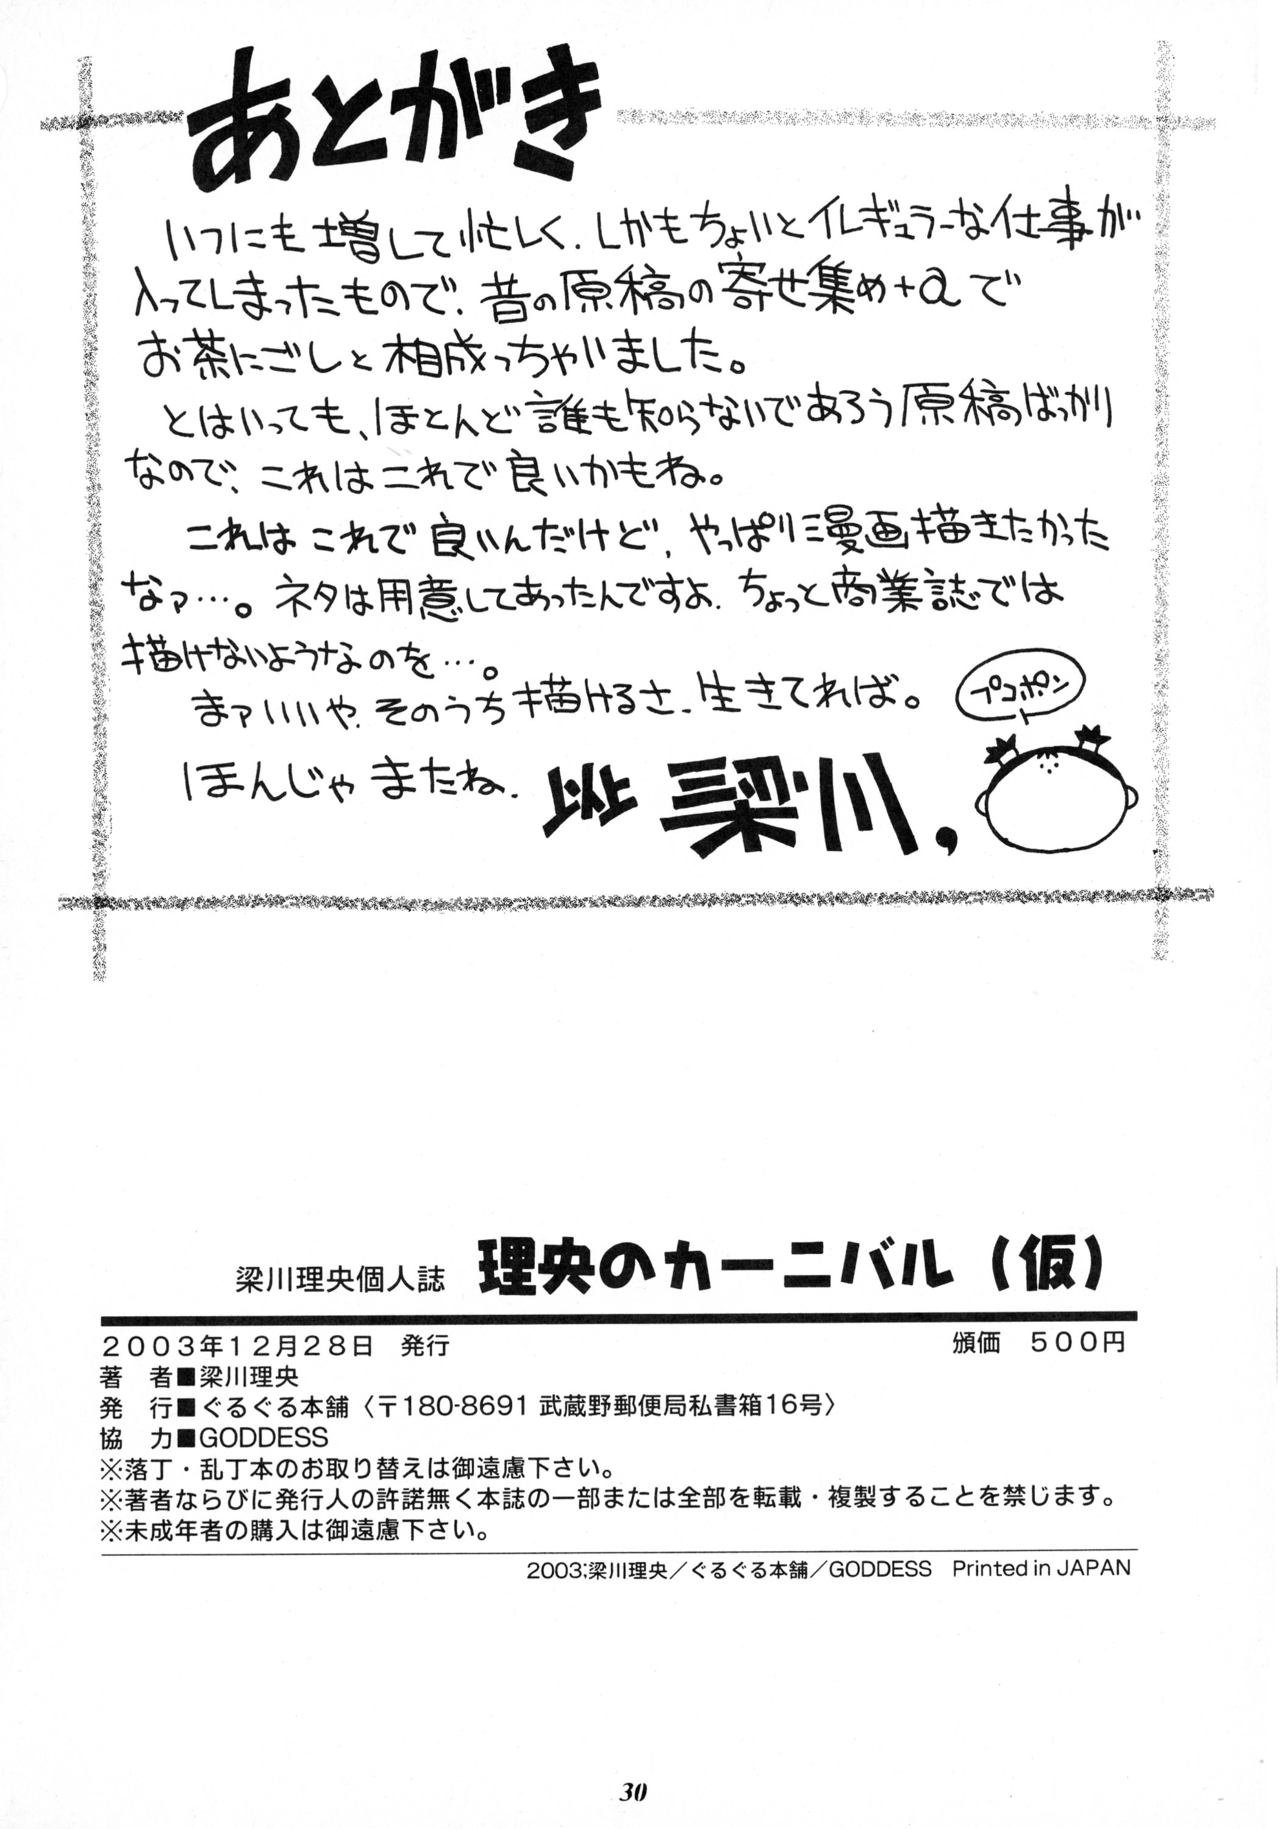 あとがき
いつにも増して忙しく、しかもちょいとイレギュラーな仕事が
入ってしまったもので、昔の原稿の寄せ集め+αで
お茶にごしと相成っちゃいました。
とはいっても、ほとんど誰も知らないであろう原稿ばっかり
なので、これはこれで良いかもね。
これはこれで良いんだけど、やっぱり漫画描きたかった
なァ…。ネタは用意してあったんですよ、ちょっと商業誌では
描けないようなのを…。
まァいいや、そのうち描けるさ、生きてれば。
プコポン
ほんじゃまたね、以上 梁川,
梁川理央個人誌 理央のカーニバル（仮）
2003年12月28日 発行 頒価 500円
著 者■梁川理央
発 行■ぐるぐる本舗〈〒180-8691 武蔵野郵便局私書箱16号〉
協 力■GODDESS
※落丁・乱丁本のお取り替えは御遠慮下さい。
※著者ならびに発行人の許諾無く本誌の一部または全部を転載・複製することを禁じます。
※未成年者の購入は御遠慮下さい。
2003;梁川理央／ぐるぐる本舗／GODDESS Printed in JAPAN
30